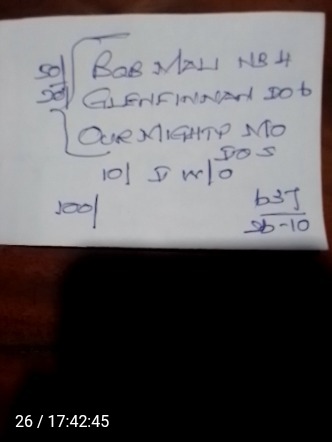 50/ BOB MALI NB 4
GLENFINNAN DO 6
OUR MIGHTY MO
DO 5
10/ D W/O
100/
637
26 / 17:42:45